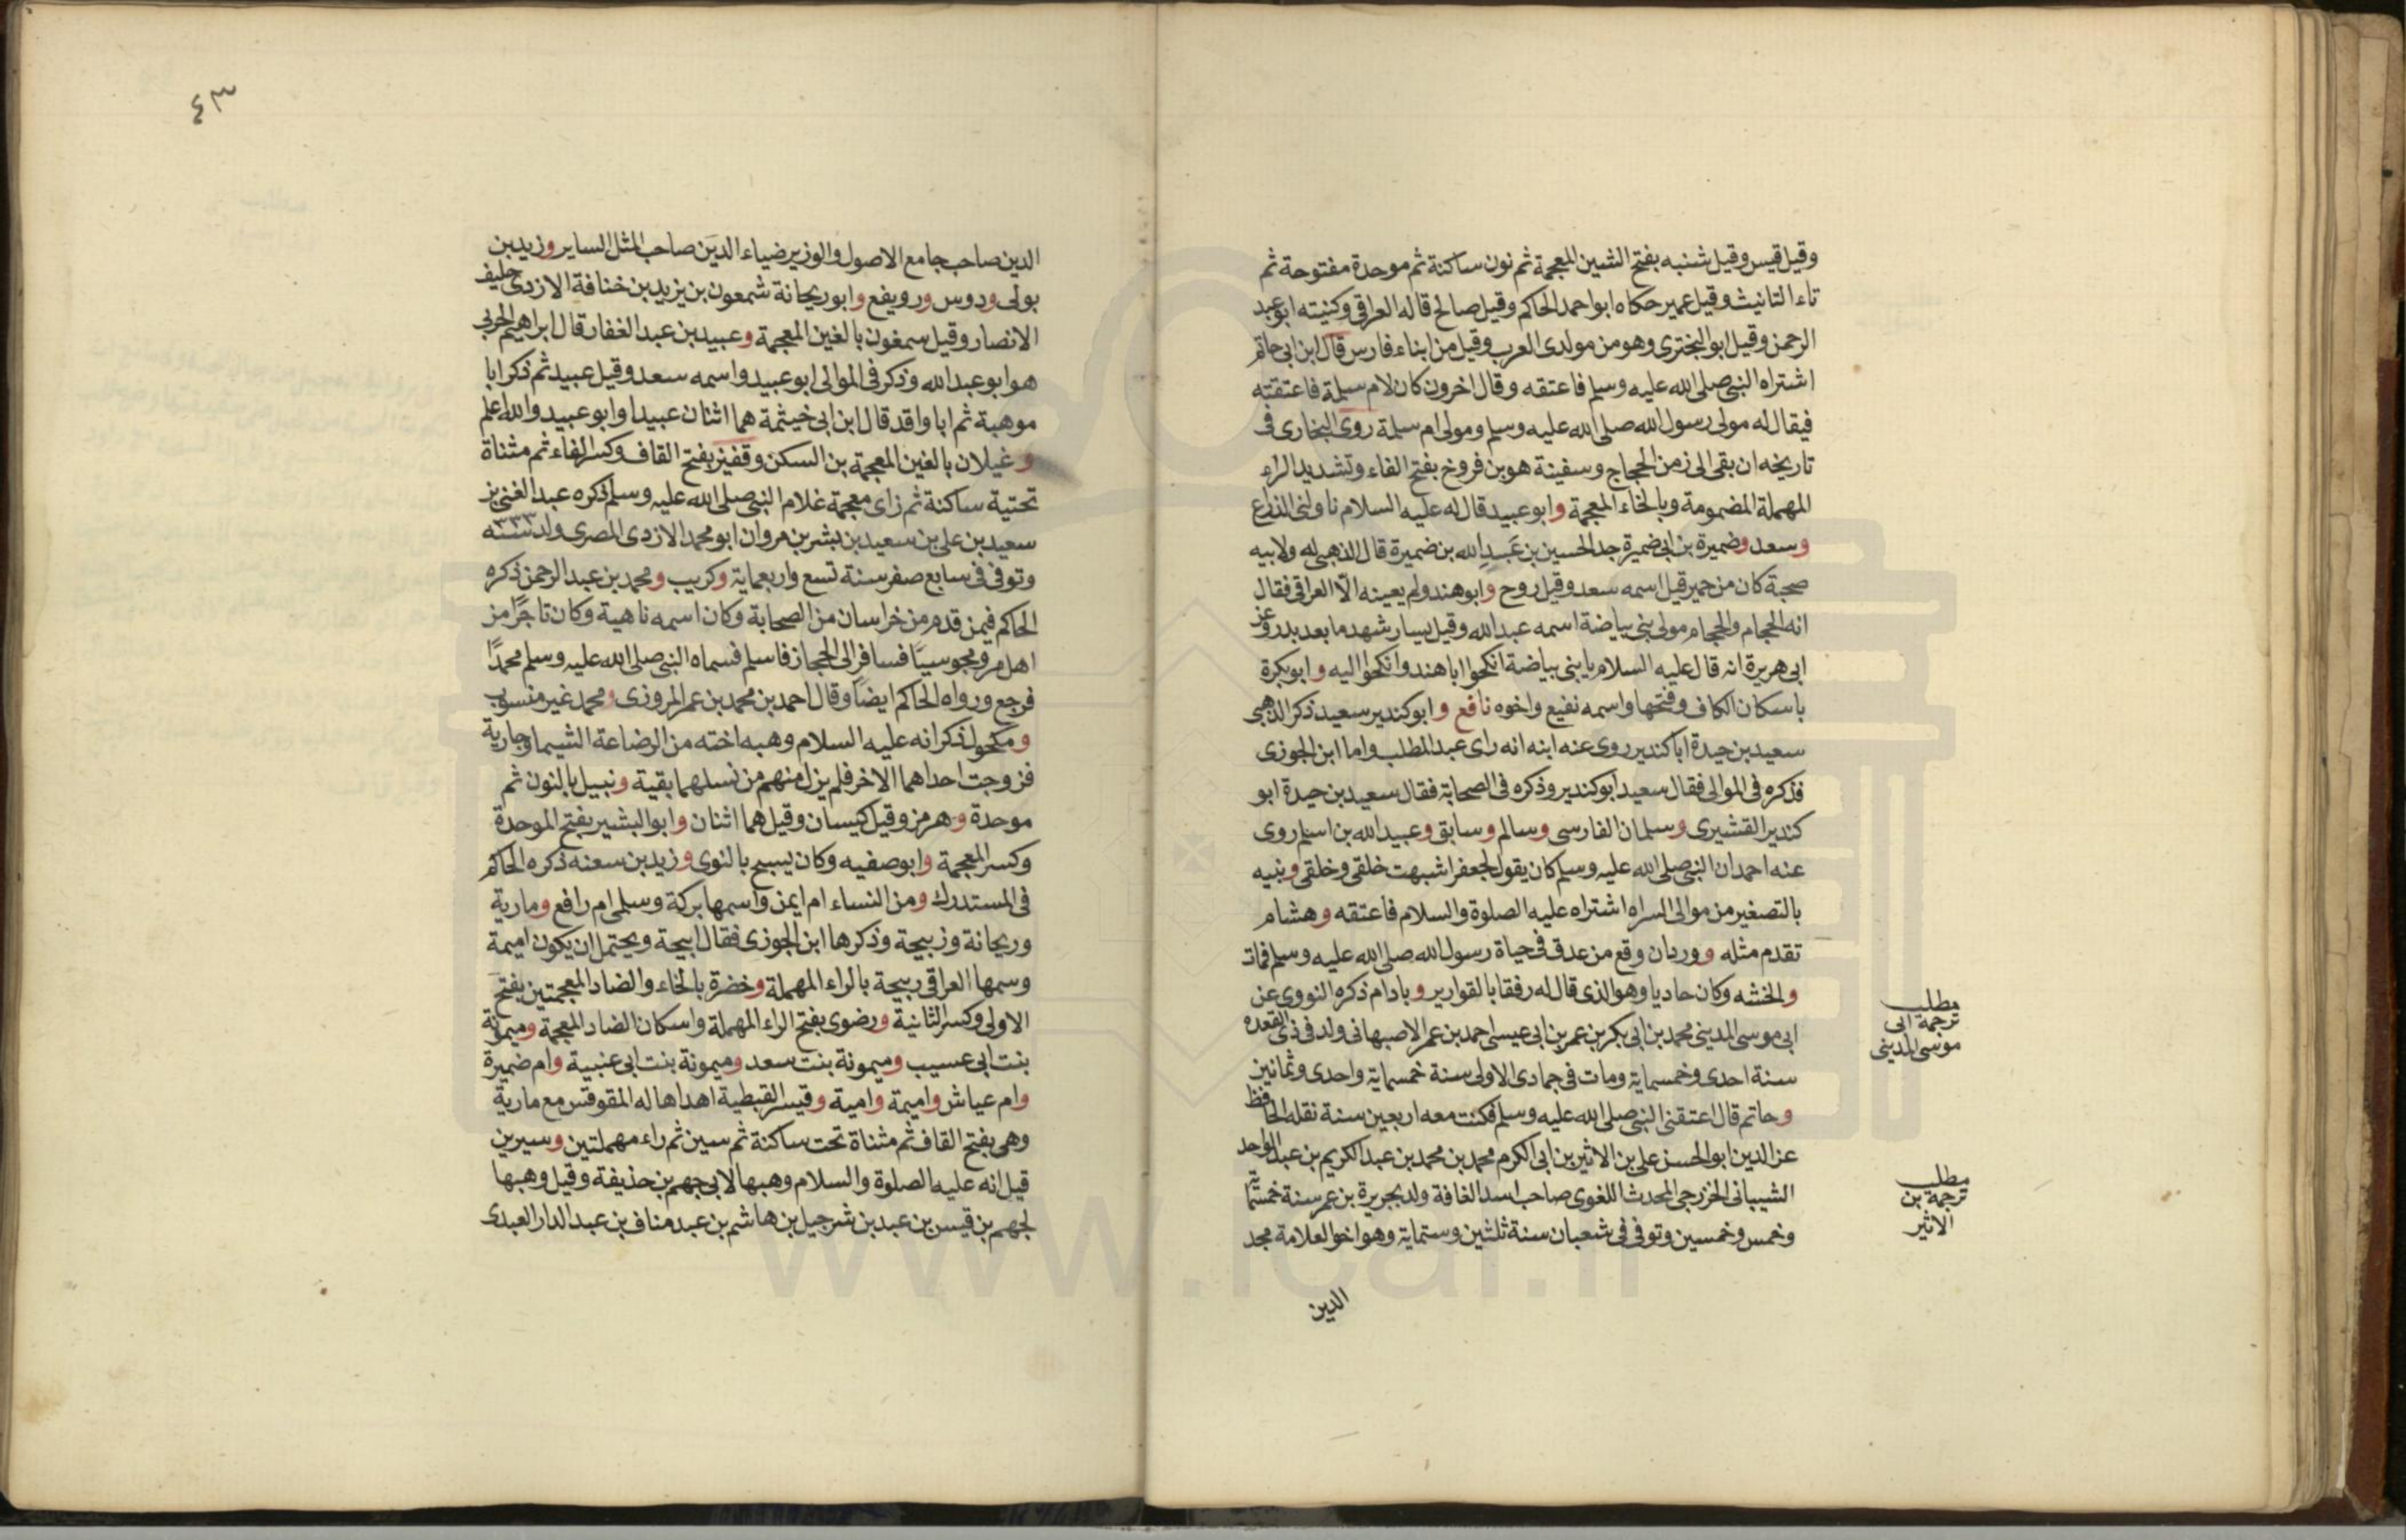 وقيل قيس وقيل شنبه بفتح الشين المعجمة ثم نون ساكنة ثم موحدة مفتوحة ثم
تاء التانيث وقيل عمير حكاه ابو احمد الحاكم وقيل صالح قاله العراقي وكنيته ابو عبد
الرحمن وقيل ابو البختري وهو من مولدى العرب وقيل من ابناء فارس قال ابن ابى حاتم
اشتراه النبى صلى الله عليه وسلم فاعتقه وقال اخرون كان لام سلمة فاعتقته
فيقال له مولى رسول الله صلى الله عليه وسلم ومولى ام سلمة روى البخارى فى
تاريخه ان بقى الى زمن الحجاج وسفينة هو بن فروخ بفتح الفاء وتشديد الراء
المهملة المضمومة وبالخاء المعجمة وابو عبيد قال له عليه السلام ناولنى الذراع
وسعد وضميرة بن ابى ضميرة جد الحسين بن عبد الله بن ضميرة قال الذهبى له ولابيه
صحبة كان من حمير قيل اسمه سعد وقيل روح وابو هند ولم يعينه الّا العراقى فقال
انه الحجام والحجام مولى بنى بياضة اسمه عبد الله وقيل يسار شهد ما بعد بدر وعن
ابى هريرة انه قال عليه السلام يا بنى بياضة انكحوا ابا هند وانكحوا اليه وابو بكرة
باسكان الكاف وفتحها واسمه نفيع واخوه نافع وابو كندير سعيد ذكر الذهبى
سعيد بن حيدة ابا كندير روى عنه ابنه انه راى عبد المطلب واما ابن الجوزى
فذكره فى الموالى فقال سعيد ابو كندير وذكره فى الصحابة فقال سعيد بن حيدة ابو
كندير القشيرى وسلمان الفارسى وسالم وسابق وعبيد الله بن اسلم روى
عنه احمد ان النبى صلى الله عليه وسلم كان يقول لجعفر اشبهت خلقى وخلقى ونبيه
بالتصغير من موالى السراه اشتراه عليه الصلوة والسلام فاعتقه وهشام
تقدم مثله ووردان وقع من عدق فى حياة رسول الله صلى الله عليه وسلم فمات
والخشه وكان حاديا وهو الذى قال له رفقا بالقوارير وبادام ذكره النووى عن
ابى موسى المدينى محمد بن ابى بكر بن عمر بن ابى عيسى احمد بن عمر الاصبهانى ولد فى ذى القعده
سنة احدى وخمسماية ومات فى جمادى الاولى سنة خمسماية واحدى وثمانين
وحاتم قال اعتقنى النبى صلى الله عليه وسلم فكنت معه اربعين سنة نقله الحافظ
عز الدين ابو الحسن على بن الاثير بن ابى الكرم محمد بن محمد بن عبد الكريم بن عبد الواحد
الشيبانى الخزرجى المحدث اللغوى صاحب اسد الغافة ولد بجريرة بن عمر سنة خمسمّا
وخمس وخمسين وتوفى فى شعبان سنة ثلثين وستماية وهو اخو العلامة مجد
الدين
مطلب
ترجمة ابى
موسى المدينى
مطلب
ترجمة بن
الاثير
٤٣
الدين صاحب جامع الاصول والوزير ضياء الدين صاحب المثل الساير وزيد بن
بولى ودوس ورويفع وابو ريحانة شمعون بن يزيد بن خنافة الازدى حليف
الانصار وقيل سمغون بالغين المعجمة وعبيد بن عبد الغفار قال ابراهيم الحربى
هو ابو عبد الله وذكر فى الموالى ابو عبيد واسمه سعد وقيل عبيد ثم ذكر ابا
موهبة ثم ابا واقد قال ابن ابى خيثمة هما اثنان عبيدا وابو عبيد والله اعلم
وغيلان بالغين المعجمة بن السكن وقفيز بفتح القاف وكسر الفاء ثم مثناة
تحتية ساكنة ثم زاى معجمة غلام النبى صلى الله عليه وسلم ذكره عبد الغنى بن
سعيد بن على بن سعيد بن بشر بن مروان ابو محمد الازدى المصرى ولد سنة ٣٣٣
وتوفى فى سابع صفر سنة تسع واربعماية وكريب ومحمد بن عبد الرحمن ذكره
الحاكم فيمن قدم من خراسان من الصحابة وكان اسمه ناهية وكان تاجرًا من
اهل مرو مجوسيّا فسافر الى الحجاز فاسلم فسماه النبى صلى الله عليه وسلم محمدًا
فرجع ورواه الحاكم ايضًا وقال احمد بن محمد بن عمر المروزى ومحمد غير منسوب
ومكحول ذكر انه عليه السلام وهبه اخته من الرضاعة الشيما وجارية
فزوجت احداهما الاخر فلم يزل منهم من نسلهما بقية ونبيل بالنون ثم
موحدة وهرمز وقيل كيسان وقيل هما اثنان وابو البشير بفتح الموحدة
وكسر المعجمة وابو صفيه وكان يسبح بالنوى وزيد بن سعنه ذكره الحاكم
فى المستدرك ومن النساء ام ايمن واسمها بركة وسلمى ام رافع ومارية
وريحانة وزبيحة وذكرها ابن الجوزى فقال ابيحة ويحتمل ان يكون اميمة
وسمها العراقى ربيحة بالراء المهملة وخضرة بالخاء والضاد المعجمتين بفتح
الاولى وكسر الثانية ورضوى بفتح الراء المهملة واسكان الضاد المعجمة وميمونة
بنت ابى عسيب وميمونة بنت سعد وميمونة بنت ابى عنبية وام ضميرة
وام عياش واميمة وامية وقيسر القبطية اهداها له المقوقس مع مارية
وهى بفتح القاف ثم مثناة تحت ساكنة ثم سين ثم راء مهملتين وسيرين
قيل انه عليه الصلوة والسلام وهبها لابى جهم بن حذيفة وقيل وهبها
لجهم بن قيس بن عبد بن شرجيل بن هاشم بن عبد مناف بن عبد الدار العبدى